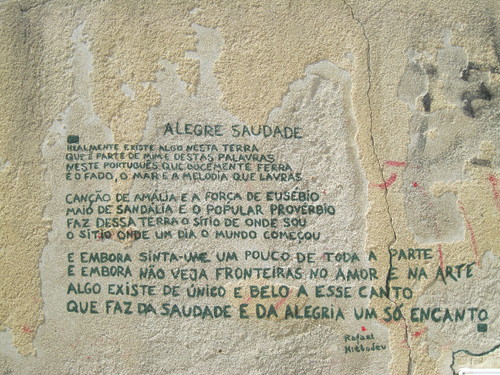 ALEGRE SAUDADE
REALMENTE EXISTE ALGO NESTA TERRA
QUE É PARTE DE MIM E DESTAS PALAVRAS
NESTE PORTUGUÊS QUE DOCEMENTE FERRA
E O FADO, O MAR E A MELODIA QUE LAVRAS
CANÇÃO DE AMÁLIA E A FORÇA DE EUSÉBIO
MAIO DE SANDÁLIA E O POPULAR PROVÉRBIO
FAZ DESSA TERRA O SÍTIO DE ONDE SOU
O SÍTIO ONDE UM DIA O MUNDO COMEÇOU
E EMBORA SINTA-ME UM POUCO DE TODA A PARTE
E EMBORA NÃO VEJA FRONTEIRAS NO AMOR E NA ARTE
ALGO EXISTE DE ÚNICO E BELO A ESSE CANTO
QUE FAZ DA SAUDADE E DA ALEGRIA UM SÓ ENCANTO
Rafael